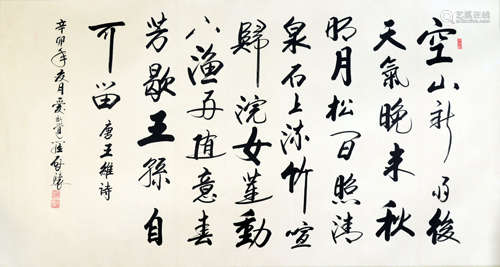 空山新雨後
天氣晚来秋
明月松間照清
泉石上流竹喧
歸浣女蓮動
下漁舟随意春
芳歇王孫自
可留 唐王維詩
辛卯年